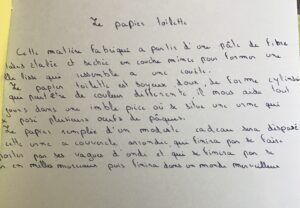 Le papier toilette
Cette matière fabriqué a partir d'une pâte de fibre
étalée et séchée en couche mince pour former une
lisse qui ressemble a une
Le papier toilette est soyeux doux de forme cylind
qui peut être de couleur différente il nous aide tout
jours dans une pièce où se situe une urne qui
plusieurs œufs de pâques.
Le papier remplie d'un modeste cadeau sera disposé
cette urne a couvercle arrondie qui finira par se faire
porter par ses vagues d'onde et qui se finira par se
en milles morceaux puis finira dans un monde merveilleux